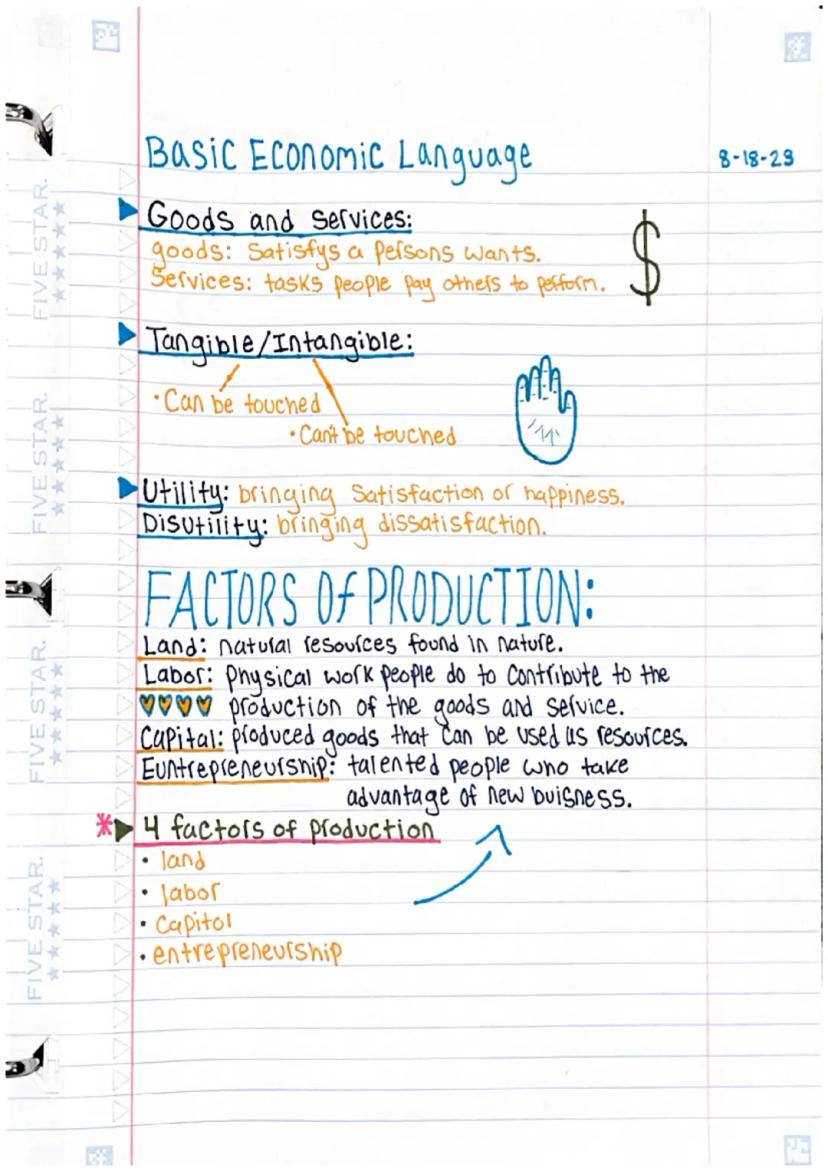 Basic Economic Language
8-18-23
Goods and Services:
goods: Satisfys a persons wants.
Services: tasks people pay others to perform.
$
Tangible/Intangible:
• Can be touched
• Can't be touched
Utility: bringing Satisfaction or happiness.
Disutility: bringing dissatisfaction.
FACTORS Of PRODUCTION:
Land: natural resources found in nature.
Labor: physical work people do to contribute to the
production of the goods and service.
Capital: produced goods that can be used as resources.
Euntrepreneurship: talented people who take
advantage of new buisness.
* 4 factors of production
• land
• labor
• Capitol
• entrepreneurship
FIVE STAR.
FIVE STAR.
FIVE STAR.
FIVE STAR.